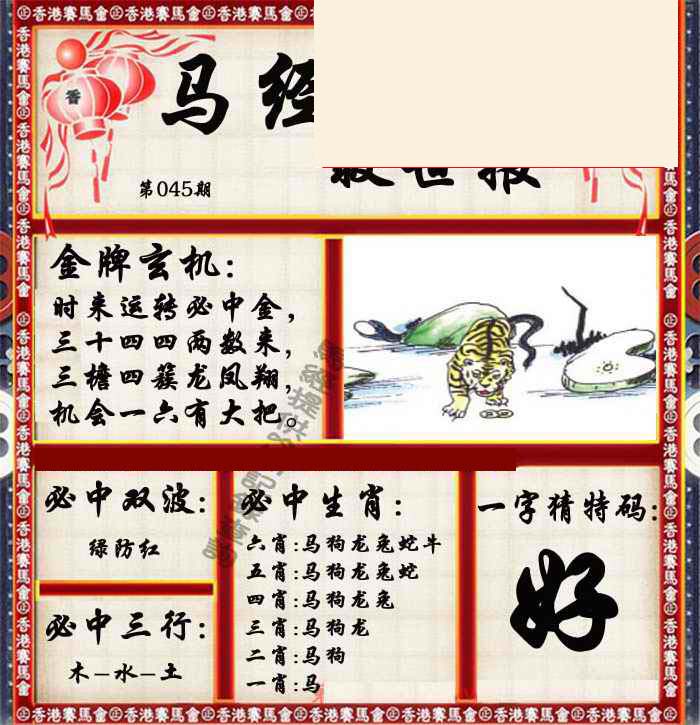 ㊣香港賽馬會㊣香港賽馬會㊣香港賽馬會㊣香港賽馬會㊣香港賽馬會㊣香港賽馬會㊣
香
马经
救世报
第045期
金牌玄机:
时来运转必中金,
三十四四两数来,
三檐四簇龙凤翔,
机会一六有大把。
必中双波:
绿防红
必中三行:
木-水-土
必中生肖:
六肖:马狗龙兔蛇牛
五肖:马狗龙兔蛇
四肖:马狗龙兔
三肖:马狗龙
二肖:马狗
一肖:马
一字猜特码:
好